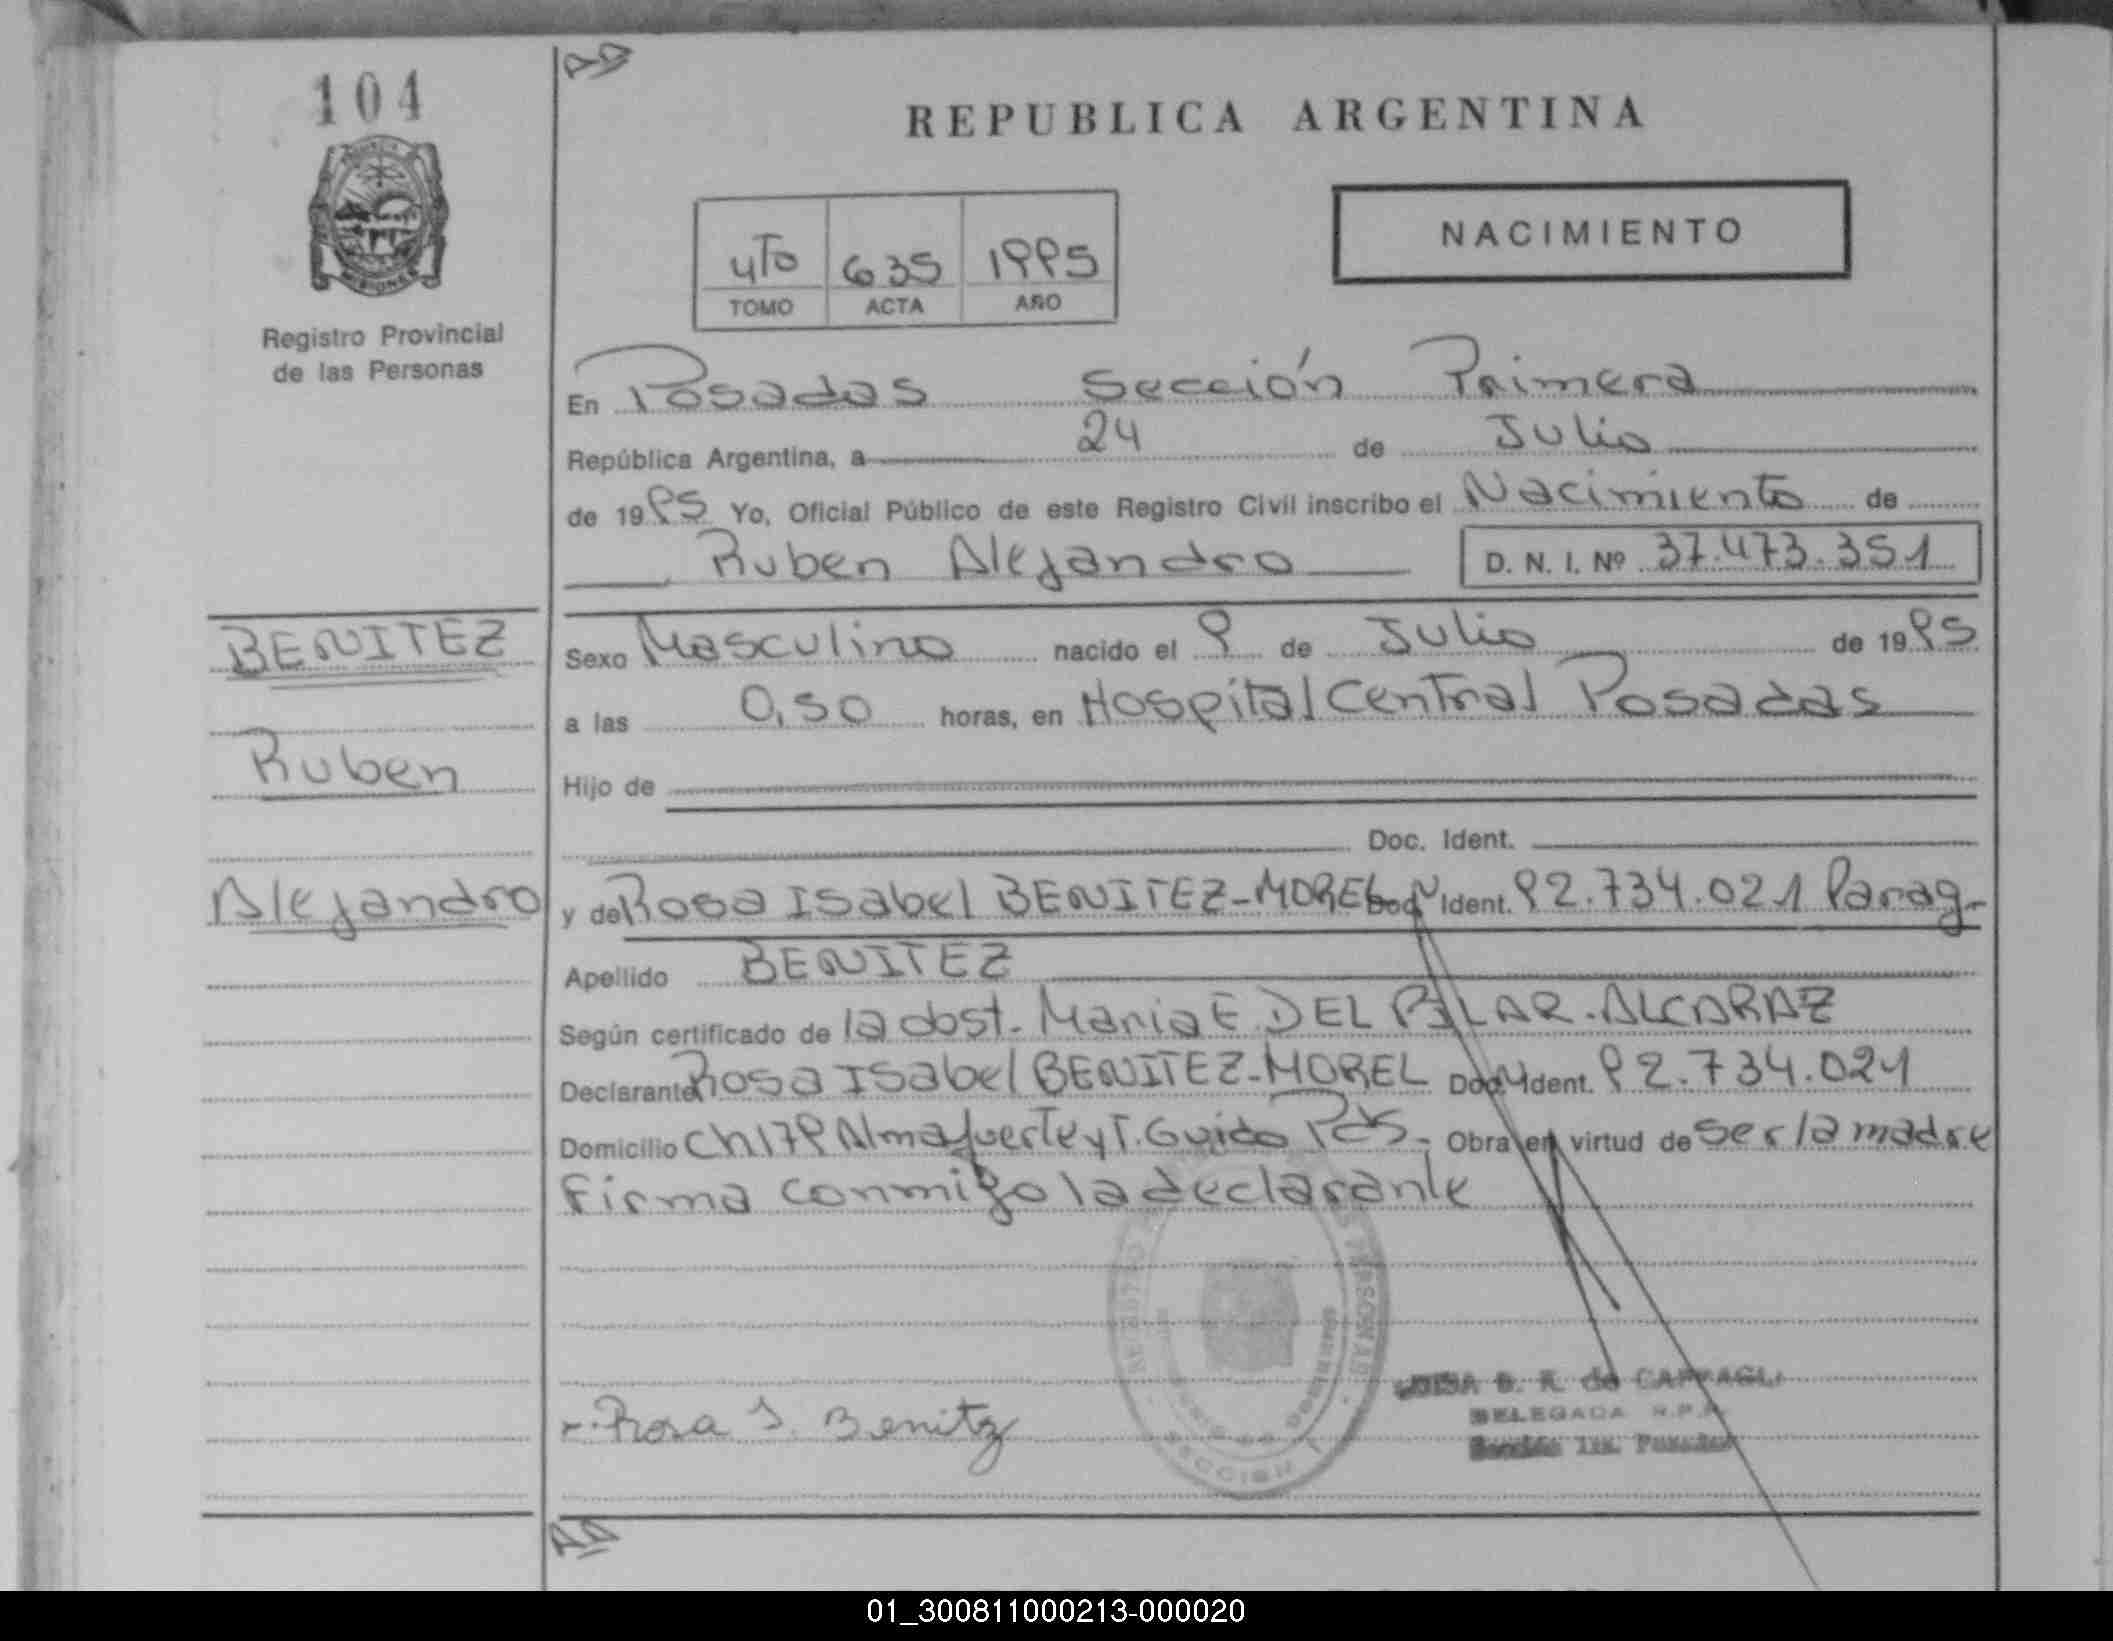 104
REPUBLICA ARGENTINA
NACIMIENTO
4To 635 1995
TOMO ACTA AÑO
Registro Provincial
de las Personas
En Posadas Sección Primera
República Argentina, a 24 de Julio
de 1995 Yo, Oficial Público de este Registro Civil inscribo el Nacimiento de
Ruben Alejandro D. N. I. Nº 37.473.351
BENITEZ
Ruben
Alejandro
Sexo Masculino nacido el 9 de Julio de 1995
a las 0,50 horas, en Hospital Central Posadas
Hijo de
Doc. Ident.
y de Rosa Isabel BENITEZ-MOREL Doc. Ident. 92.734.021 Parag-
Apellido BENITEZ
Según certificado de la obst. Maria E DEL PILAR-ALCARAZ
Declarante Rosa Isabel BENITEZ-MOREL Doc. Ident. 92.734.021
Domicilio Ch179 Almafuerte y T. Guido Pdas- Obra en virtud de ser la madre
firma conmigo la declarante
SECCION 1
Rosa I. Benitez
DELEGADA R.P.P.
Sección 1ra. Posadas
01_300811000213-000020